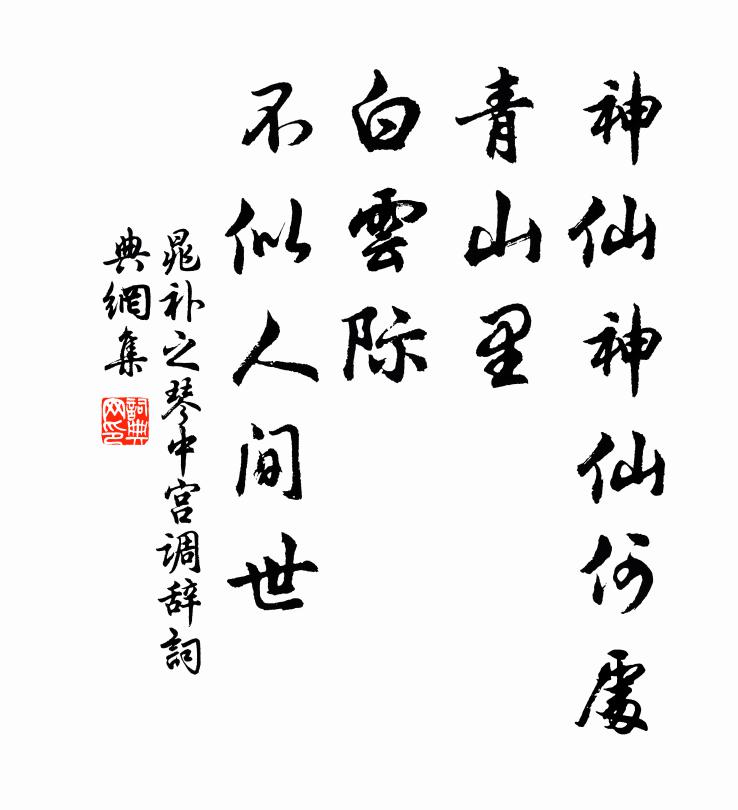 神仙神仙何處
青山里
白雲际
不似人间世
晁补之琴中宫调辞詞
典網集
詞典
网印